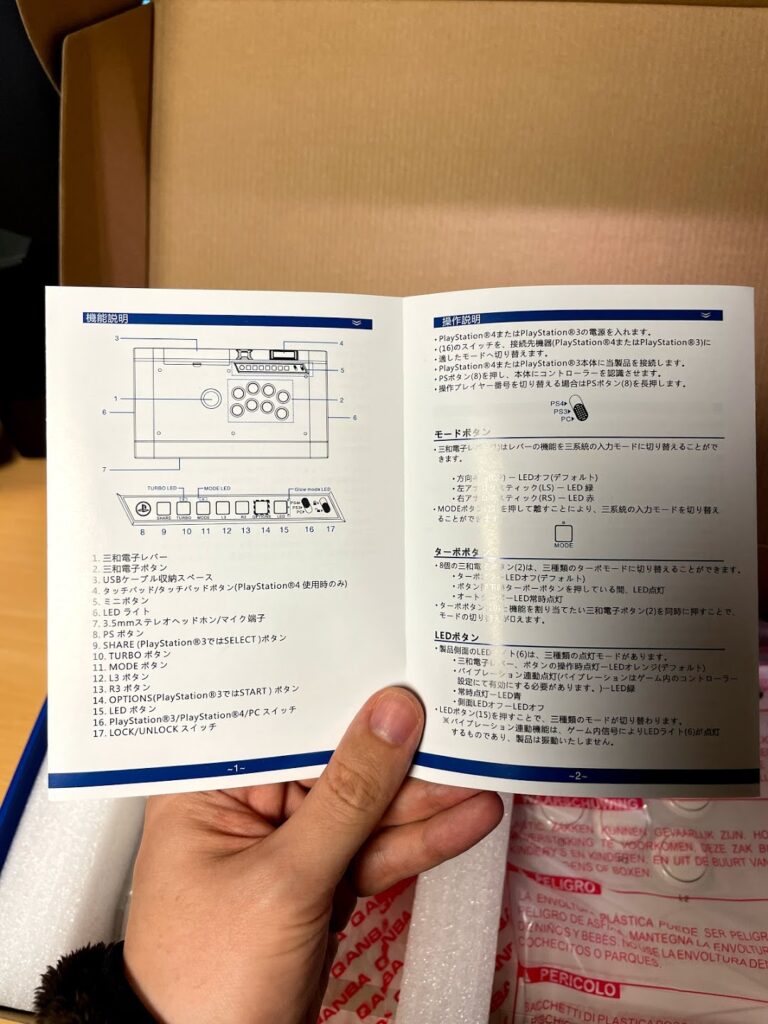 機能説明
3
4
5
1
2
6
6
7
TURBO LED
MODE LED
Glow mode LED
PS4
PS3
PC
SHARE
TURBO
MODE
L3
R3
OPTIONS
LED
8 9 10 11 12 13 14 15 16 17
1. 三和電子レバー
2. 三和電子ボタン
3. USBケーブル収納スペース
4. タッチパッド/タッチパッドボタン(PlayStation®4 使用時のみ)
5. ミニボタン
6. LED ライト
7. 3.5mmステレオヘッドホン/マイク端子
8. PS ボタン
9. SHARE (PlayStation®3ではSELECT )ボタン
10. TURBO ボタン
11. MODE ボタン
12. L3 ボタン
13. R3 ボタン
14. OPTIONS(PlayStation®3ではSTART ) ボタン
15. LED ボタン
16. PlayStation®3/PlayStation®4/PC スイッチ
17. LOCK/UNLOCK スイッチ
~1~
操作説明
・PlayStation®4またはPlayStation®3の電源を入れます。
・(16)のスイッチを、接続先機器(PlayStation®4またはPlayStation®3)に
・適したモードへ切り替えます。
・PlayStation®4またはPlayStation®3本体に当製品を接続します。
・PSボタン(8)を押し、本体にコントローラーを認識させます。
・操作プレイヤー番号を切り替える場合はPSボタン(8)を長押します。
PS4
PS3
PC
モードボタン
・三和電子レバー(1)はレバーの機能を三系統の入力モードに切り替えることがで
きます。
・方向キー ー LEDオフ(デフォルト)
・左アナ スティック(LS) ー LED 緑
・右アナ スティック(RS) ー LED 赤
・MODEボタン を押して離すことにより、三系統の入力モードを切り替え
ることができ
MODE
ターボボタン
・8個の三和電子ボタン(2)は、三種類のターボモードに切り替えることができます。
・ターボ ーLEDオフ(デフォルト)
・ボタン ボタンを押している間、LED点灯
・オート ーLED常時点灯
・ターボボタン と機能を割り当てたい三和電子ボタン(2)を同時に押すことで、
モードの切り
LEDボタン
・製品側面のLEDライト(6)は、三種類の点灯モードがあります。
・三和電子レバー、ボタンの操作時点灯ーLEDオレンジ(デフォルト)
・バイブレーション連動点灯(バイブレーションはゲーム内のコントローラー
設定にて有効にする必要があります。)ーLED緑
・常時点灯ーLED青
・側面LEDオフーLEDオフ
・LEDボタン(15)を押すことで、三種類のモードが切り替わります。
※バイブレーション連動機能は、ゲーム内信号によりLEDライト(6)が点灯
するものであり、製品は振動いたしません。
~2~
WAARSCHUWING
PLASTIC ZAKKEN KUNNEN GEVAARLIJK ZIJN. HO
VERSTIKKING TE VOORKOMEN. DEZE ZAK B
EN KINDEREN. EN UIT DE BUURT VAN
OF BOXEN.
PELIGRO
LA ENVOLTURA PLASTICA PUEDE SER PELIGR
PELIGRO DE MANTENGA LA ENVOLTUR
DE NIÑOS Y BEBÉS. NO USE LA ENVOLTURA DE
COCHECITOS O PARQUES.
PERICOLO
SACCHETTI DI PLASTICA
QANBA
QANBA
QANBA
QANBA